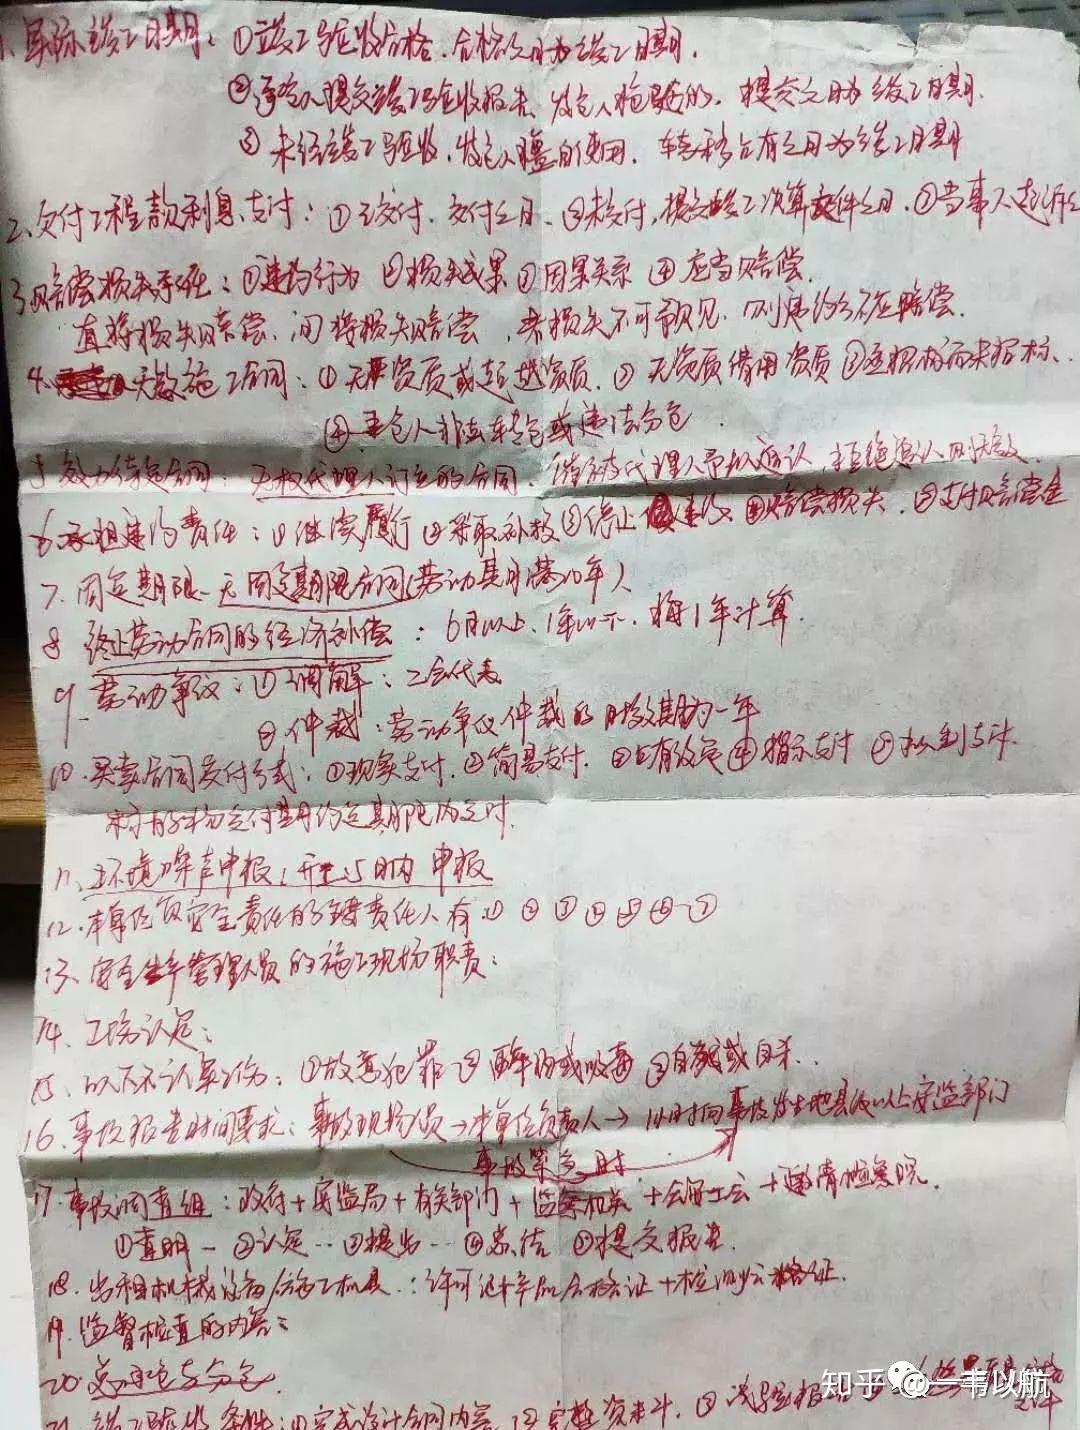 1、实际竣工日期：①竣工验收合格，合格之日为竣工日期.
②承包人提交竣工验收报告，发包人拖延的，提交之日为竣工日期.
③未经竣工验收，发包人擅自使用，转移占有之日为竣工日期
2、欠付工程款利息支付：①交付，交付之日、②未交付，提交竣工决算文件之日、③当事人起诉之
3、赔偿损失责任：①违约行为 ②损失后果 ③因果关系 ④应当赔偿.
直接损失赔偿，间接损失赔偿，若损失不可预见，则违约方不应赔偿.
4. 无效施工合同：①无资质或超越资质. ②无资质借用资质 ③应招标而未招标、
④承包人非法转包或违法分包
5 效力待定合同：无权代理人订立的合同. 被代理人予以追认，拒绝追认则无效.
6、承担违约责任：①继续履行 ②采取补救 ③停止违约 ④赔偿损失. ⑤支付赔偿金
7、固定期限-无固定期限合同(劳动期满10年)
8 终止劳动合同的经济补偿：6月以上、1年以下、按1年计算.
9 劳动争议：①调解：工会代表
②仲裁：劳动争议仲裁的时效期为一年
10、买卖合同交付方式：①现实支付. ②简易支付. ③占有改定 ④指示支付 ⑤拟制支付.
标的物交付期约定期限内交付.
11、环境噪声申报：开工15日内申报
12、本单位安全责任的主要责任人有：① ② ③ ④ ⑤ ⑥ ⑦
13、安全生产管理人员的施工现场职责：
14、工伤认定：
15、以下不认算工伤：①故意犯罪 ② 醉酒或吸毒 ③自残或自杀..
16、事故报告时间要求：事故现场人员→本单位负责人→1小时向事故发生地县级以上安监部门
事故紧急时
17、事故调查组：政府+安监局+有关部门+监察机关+公安+工会+邀请检察院.
①查明- ②认定-- ③提出-- ④总结 ⑤提交报告.
18、出租机械设备/施工机具：许可证+产品合格证+检测合格证.
19、监督检查的内容：
20、总承包与分包.
21、竣工验收条件：①完成设计合同内容 ②完整资料. ③试验报告
知乎 @一苇以航